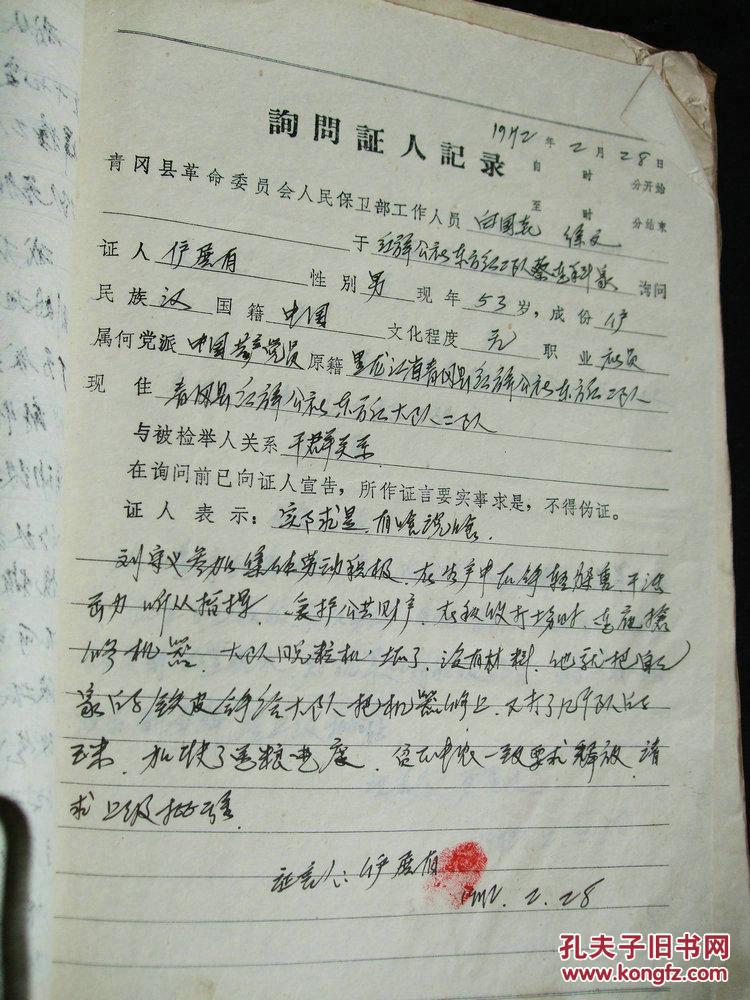 詢問証人記录
1972年2月28日
自 时 分开始
至 时 分结束
青冈县革命委员会人民保卫部工作人员 白国志 徐文
于 红旗公社东方红二队蔡 家 询问
证人 伊庆有 性别 男 现年 53岁,成份 伊
民族 汉 国籍 中国 文化程度 无 职业 社员
属何党派 中国共产党员 原籍 黑龙江省青冈县红旗公社东方红二队
现住 青冈县红旗公社东方红大队二队
与被检举人关系 干群关系
在询问前已向证人宣告,所作证言要实事求是,不得伪证。
证人表示: 实事求是,有啥说啥。
刘守义参加集体劳动积极,在生产中不分轻躲重,干活
卖力听从指挥,爱护公共财产,在秋收打场时,连夜抢
修机器,大队脱粒机坏了,没有材料,他就把自己
家的铁皮拿给大队把机器修上,又打了几个队的
玉米,加快了送粮进度,贫下中农一致要求释放,请
求上级批准。
证言人:伊庆有
1972.2.28
孔夫子旧书网
www.kongfz.com